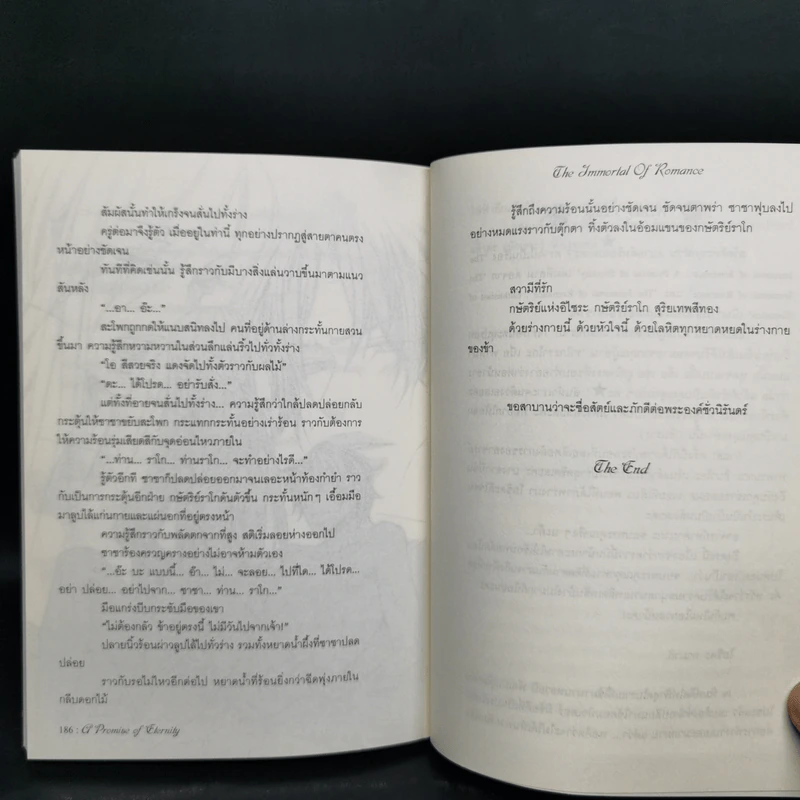 สัมผัสนั้นทำให้เกร็งจนสั่นไปทั้งร่าง
ครู่ต่อมาจึงรู้ตัว เมื่ออยู่ในท่านี้ ทุกอย่างปรากฏสู่สายตาคนตรง
หน้าอย่างชัดเจน
ทันทีที่คิดเช่นนั้น รู้สึกราวกับมีบางสิ่งแล่นวาบขึ้นมาตามแนว
สันหลัง
"...อา... อ๊ะ..."
สะโพกถูกกดให้แนบสนิทลงไป คนที่อยู่ด้านล่างกระทั้นกายสวน
ขึ้นมา ความรู้สึกหวามหวานในส่วนลึกแล่นริ้วไปทั่วทั้งร่าง
"โอ สีสวยจริง แดงจัดไปทั้งตัวราวกับผลไม้"
"ดะ... ได้โปรด... อย่ารับสั่ง..."
แต่ทั้งที่อายจนสั่นไปทั้งร่าง... ความรู้สึกว่าใกล้ปลดปล่อยกลับ
กระตุ้นให้ซาซาขยับสะโพก กระแทกกระทั้นอย่างเร่าร้อน ราวกับต้องการ
ให้ความร้อนรุ่มเสียดสีกับจุดอ่อนไหวภายใน
"...ท่าน... ราโก... ท่านราโก... จะทำอย่างไรดี..."
รู้ตัวอีกที ซาซาก็ปลดปล่อยออกมาจนเลอะหน้าท้องกำยำ ราว
กับเป็นการกระตุ้นอีกฝ่าย กษัตริย์ราโกดันตัวขึ้น กระทั้นหนักๆ เอื้อมมือ
มาลูบไล้แก่นกายและแผ่นอกที่อยู่ตรงหน้า
ความรู้สึกราวกับพลัดตกจากที่สูง สติเริ่มลอยห่างออกไป
ซาซาร้องครวญครางอย่างไม่อาจห้ามตัวเอง
"...อ๊ะ บะ แบบนี้... อ๊า... ไม่... จะลอย... ไปที่ใด... ได้โปรด...
อย่า ปล่อย... อย่าไปจาก... ซาซา... ท่าน... ราโก..."
มือแกร่งบีบกระชับมือของเขา
"ไม่ต้องกลัว ข้าอยู่ตรงนี้ ไม่มีวันไปจากเจ้า!"
ปลายนิ้วร้อนผ่าวลูบไล้ไปทั่วร่าง รวมทั้งหยาดน้ำผึ้งที่ซาซาปลด
ปล่อย
ราวกับรอไม่ไหวอีกต่อไป หยาดน้ำที่ร้อนยิ่งกว่าฉีดพุ่งภายใน
กลีบดอกไม้
186 : A Promise of Eternity
The Immortal Of Romance
รู้สึกถึงความร้อนนั้นอย่างชัดเจน ชัดจนตาพร่า ซาซาฟุบลงไป
อย่างหมดแรงราวกับตุ๊กตา ทิ้งตัวลงในอ้อมแขนของกษัตริย์ราโก
สวามีที่รัก
กษัตริย์แห่งอีไซระ กษัตริย์ราโก สุริยเทพสีทอง
ด้วยร่างกายนี้ ด้วยหัวใจนี้ ด้วยโลหิตทุกหยาดหยดในร่างกาย
ของข้า
ขอสาบานว่าจะซื่อสัตย์และภักดีต่อพระองค์ชั่วนิรันดร์
The End